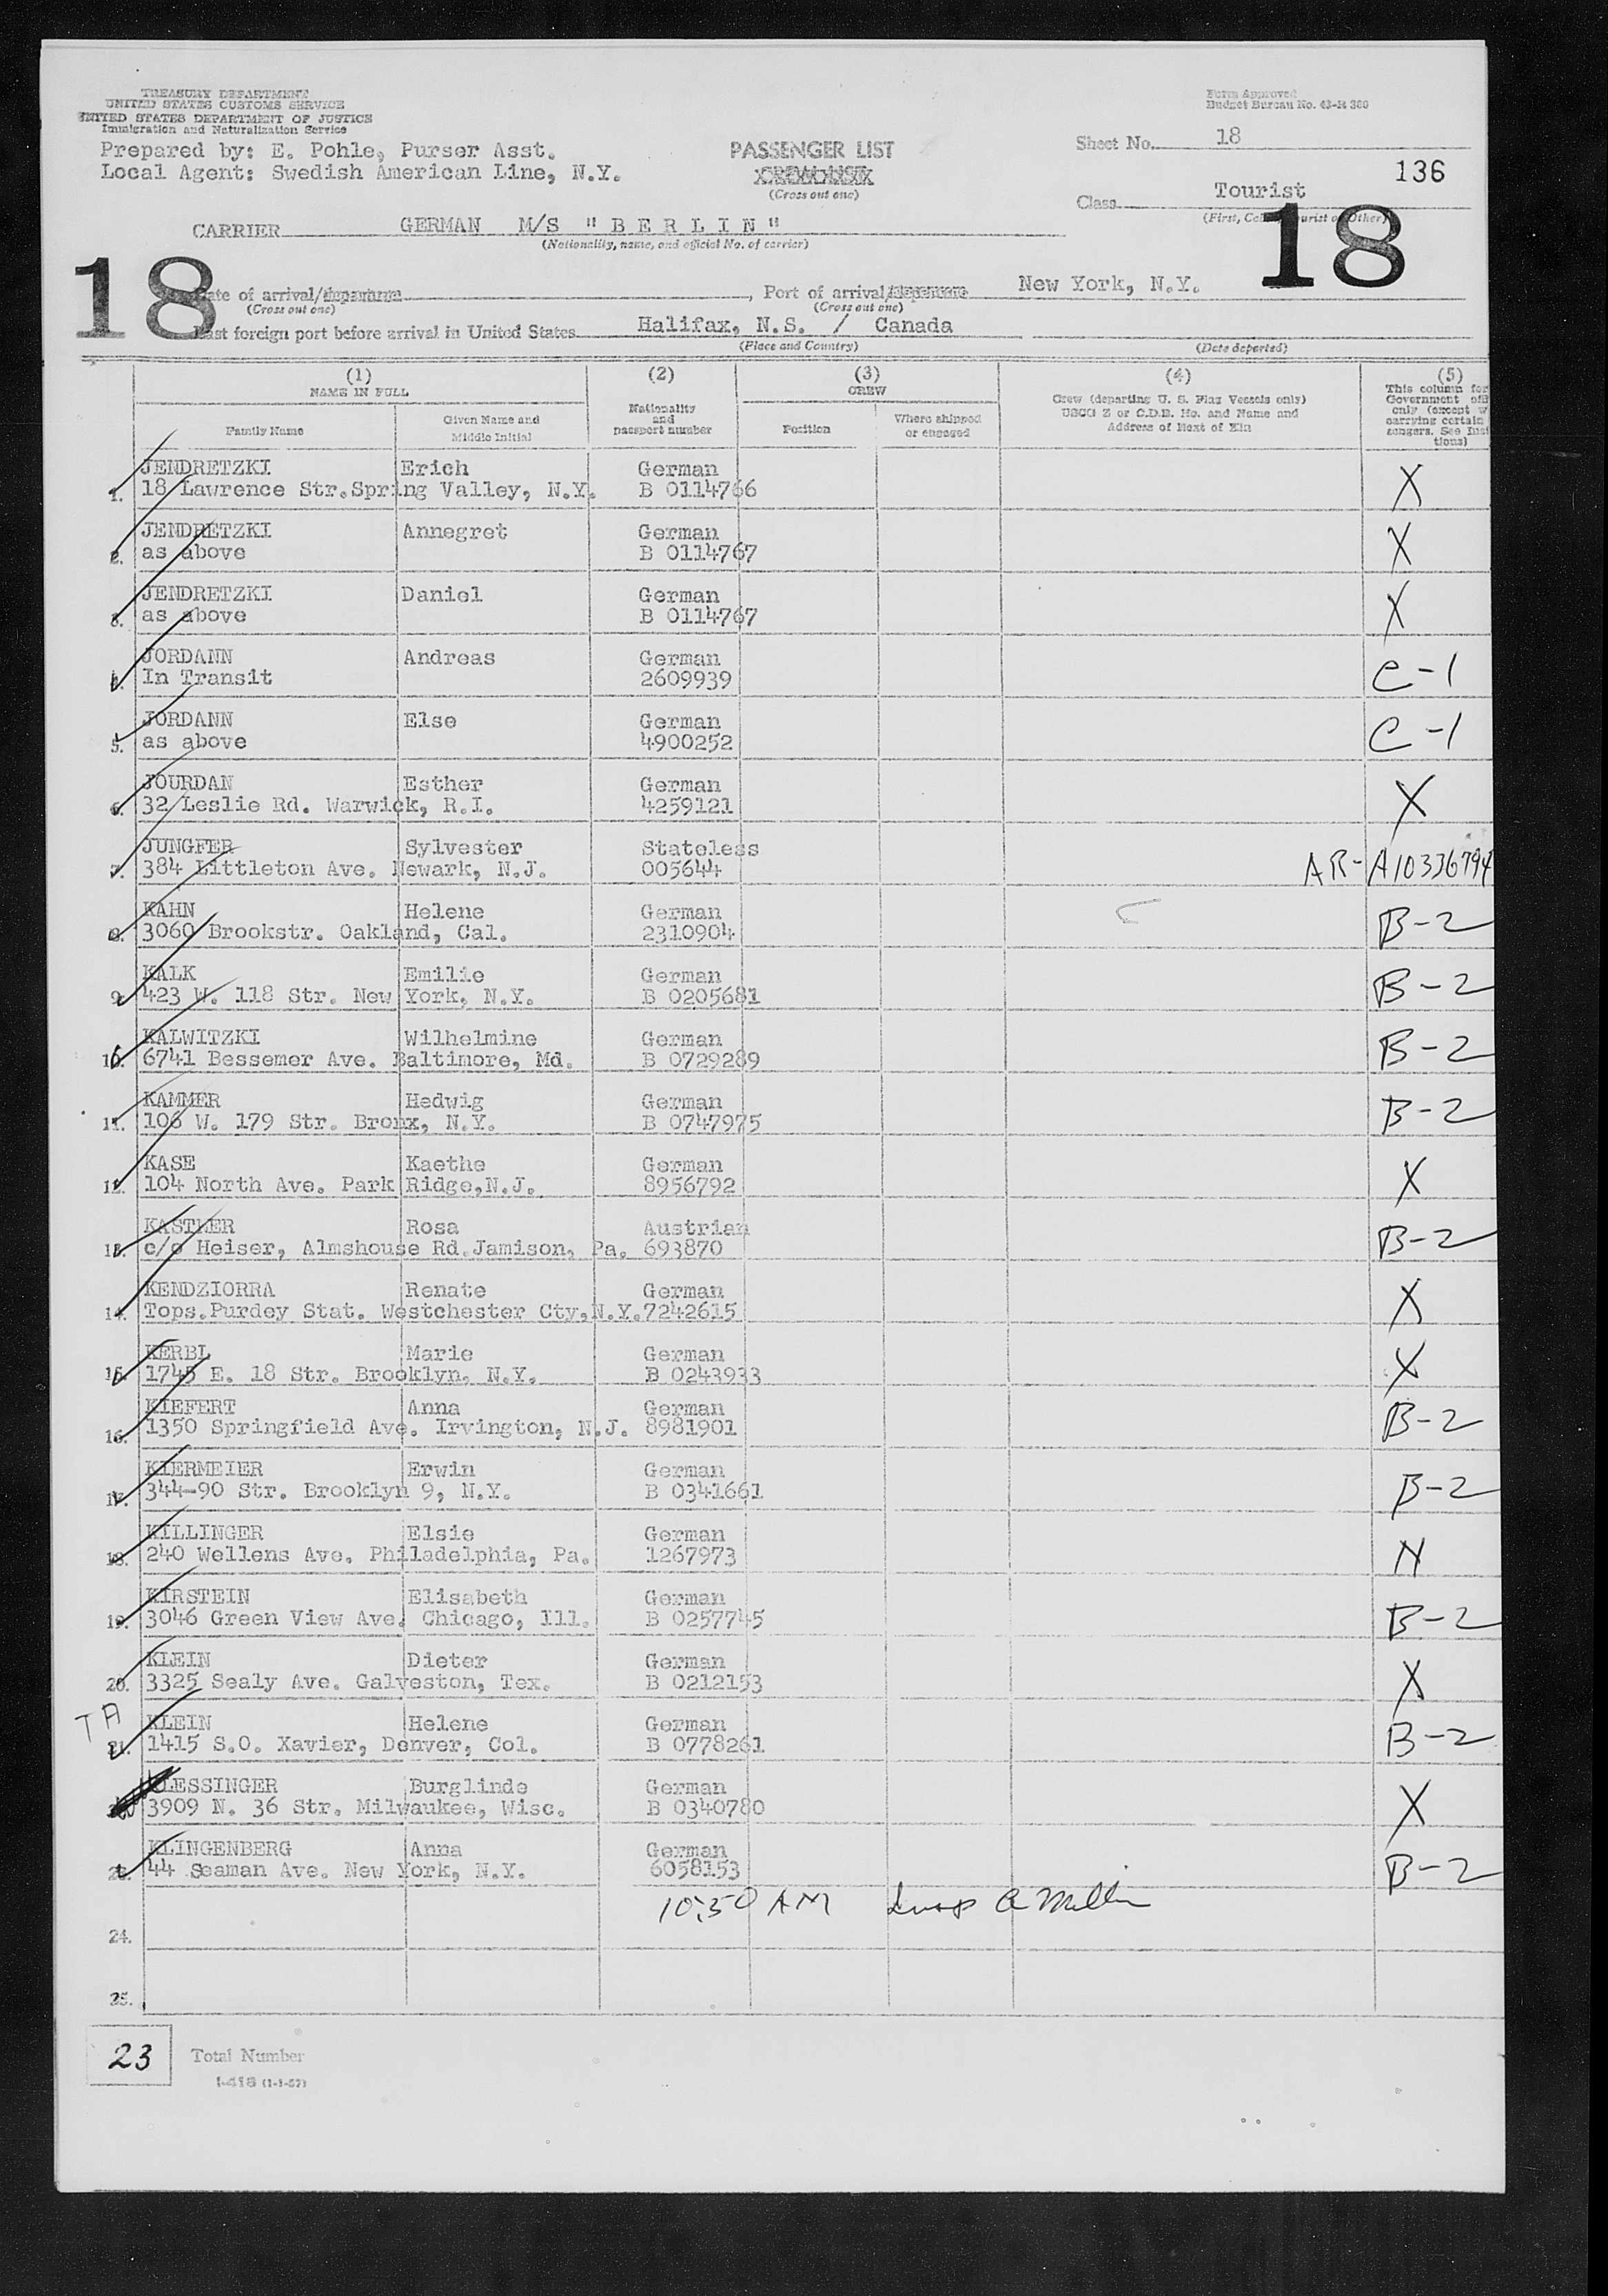 TREASURY DEPARTMENT
UNITED STATES CUSTOMS SERVICE
UNITED STATES DEPARTMENT OF JUSTICE
Immigration and Naturalization Service
Form Approved
Budget Bureau No. 43-R 360
Prepared by: E. Pohle, Purser Asst.
Local Agent: Swedish American Line, N.Y.
PASSENGER LIST
CREW LIST
(Cross out one)
Sheet No. 18
136
Class Tourist
(First, Cabin, Tourist or Other)
CARRIER GERMAN M/S "BERLIN"
(Nationality, name, and official No. of carrier)
18
18
Date of arrival/departure , Port of arrival/departure New York, N.Y.
(Cross out one) (Cross out one)
Last foreign port before arrival in United States Halifax, N.S. / Canada
(Place and Country) (Date departed)
(1) (2) (3) (4) (5)
NAME IN FULL
Family Name
Given Name and Middle Initial
Nationality and passport number
CREW
Position
Where shipped or engaged
Crew (departing U. S. Flag Vessels only)
USCG Z or C.D.B. No. and Name and
Address of Next of Kin
This column for
Government
only (except
carrying certain
sengers. See Inst
tions)
1. JENDRETZKI Erich German X
18 Lawrence Str.Spring Valley, N.Y. B 0114766
2. JENDRETZKI Annegret German X
as above B 0114767
3. JENDRETZKI Daniel German X
as above B 0114767
4. JORDANN Andreas German C-1
In Transit 2609939
5. JORDANN Else German C-1
as above 4900252
6. JOURDAN Esther German X
32 Leslie Rd. Warwick, R.I. 4259121
7. JUNGFER Sylvester Stateless AR-A10336794
384 Littleton Ave. Newark, N.J. 005644
8. KAHN Helene German B-2
3060 Brookstr. Oakland, Cal. 2310904
9. KALK Emilie German B-2
423 W. 118 Str. New York, N.Y. B 0205681
10. KALWITZKI Wilhelmine German B-2
6741 Bessemer Ave. Baltimore, Md. B 0729289
11. KAMMER Hedwig German B-2
106 W. 179 Str. Bronx, N.Y. B 0747975
12. KASE Kaethe German X
104 North Ave. Park Ridge,N.J. 8956792
13. KASTLER Rosa Austrian B-2
c/o Heiser, Almshouse Rd.Jamison, Pa. 693870
14. KENDZIORRA Renate German X
Tops.Purdey Stat. Westchester Cty,N.Y. 7242615
15. KERBL Marie German X
1745 E. 18 Str. Brooklyn, N.Y. B 0243933
16. KIEFERT Anna German B-2
1350 Springfield Ave. Irvington, N.J. 8981901
17. KIERMEIER Erwin German B-2
344-90 Str. Brooklyn 9, N.Y. B 0341661
18. KILLINGER Elsie German N
240 Wellens Ave. Philadelphia, Pa. 1267973
19. KIRSTEIN Elisabeth German B-2
3046 Green View Ave. Chicago, Ill. B 0257745
20. KLEIN Dieter German X
3325 Sealy Ave. Galveston, Tex. B 0212153
TA
21. KLEIN Helene German B-2
1415 S.O. Xavier, Denver, Col. B 0778261
KLESSINGER Burglinde German X
3909 N. 36 Str. Milwaukee, Wisc. B 0340780
23. KLINGENBERG Anna German B-2
44 Seaman Ave. New York, N.Y. 6058153
10:50 AM
24.
25.
23 Total Number
I-418 (1-1-57)